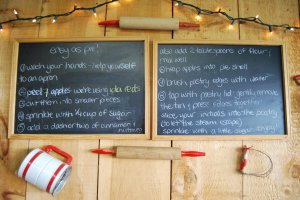 easy as pie!
① wash your hands - help yourself
to an apron
② peel 7 apples we're using idareds
③ cut them into smaller pieces
④ sprinkle with 1/4 cup of sugar
⑤ add a dash or two of cinnamon &
nutmeg
also add 2 tablespoons of flour &
mix well
⑥ heap apples into pie shell
⑦ brush pastry edges with water
⑧ top with pastry lid - gently remove
the tin & press edges together
slice your initials into the pastry
(to let the steam escape)
sprinkle with a little sugar. enjoy!